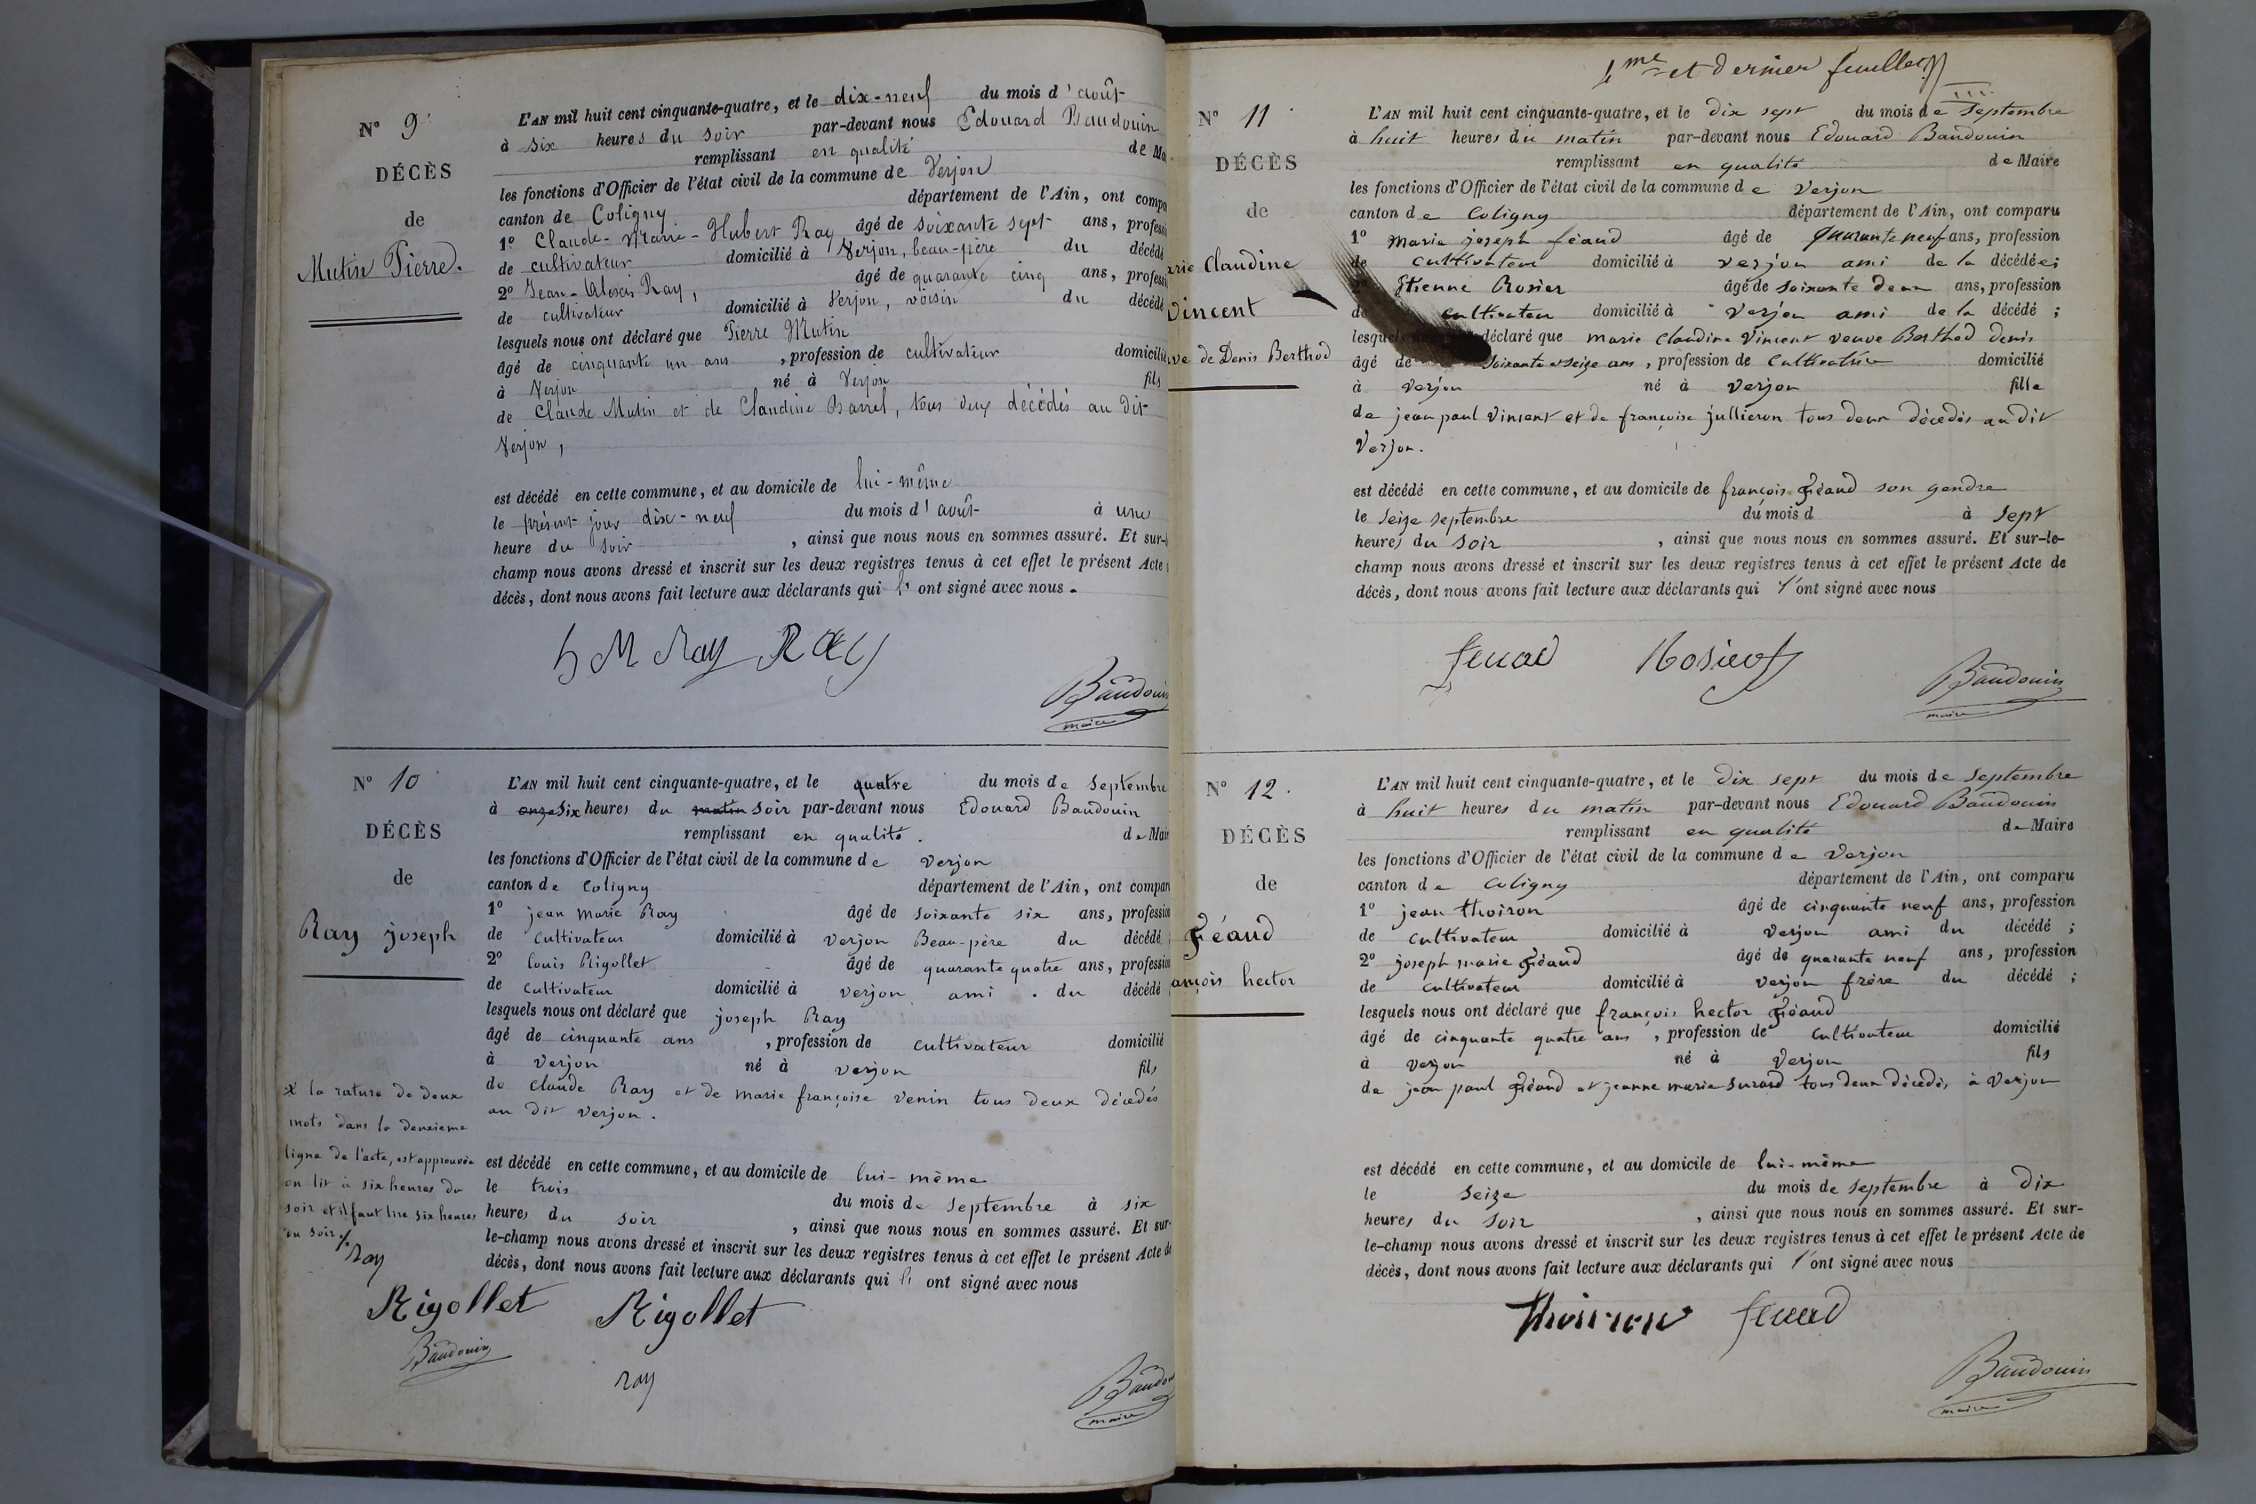 N° 9
DÉCÈS
de
Mutin Pierre.
L'AN mil huit cent cinquante-quatre, et le dix-neuf du mois d'août
à six heures du soir par-devant nous Edouard Baudouin
remplissant en qualité de Ma
les fonctions d'Officier de l'état civil de la commune de Verjon
canton de Coligny département de l'Ain, ont compa
1° Claude-Marie-Hubert Ray âgé de soixante sept ans, profess
de cultivateur domicilié à Verjon, beau-père du décédé
2° Jean-Alexis Ray, âgé de quarante cinq ans, profess
de cultivateur domicilié à Verjon, voisin du décédé
lesquels nous ont déclaré que Pierre Mutin
âgé de cinquante un ans, profession de cultivateur domicilié
à Verjon né à Verjon fils
de Claude Mutin et de Claudine Barrel, tous deux décédés au dit
Verjon,
est décédé en cette commune, et au domicile de lui-même
le présent jour dix-neuf du mois d'août à une
heure du soir, ainsi que nous nous en sommes assuré. Et sur-l
champ nous avons dressé et inscrit sur les deux registres tenus à cet effet le présent Acte
décès, dont nous avons fait lecture aux déclarants qui l' ont signé avec nous.
h M Ray Ray
Baudouin
maire
N° 10
DÉCÈS
de
Ray joseph
L'AN mil huit cent cinquante-quatre, et le quatre du mois de septembre
à onze six heures du matin soir par-devant nous Edouard Baudouin
remplissant en qualité. de Mair
les fonctions d'Officier de l'état civil de la commune de verjon
canton de coligny département de l'Ain, ont compar
1° jean marie Ray âgé de soixante six ans, profession
de cultivateur domicilié à verjon Beau-père du décédé
2° louis Rigollet âgé de quarante quatre ans, profession
de cultivateur domicilié à verjon ami. du décédé
lesquels nous ont déclaré que joseph Ray
âgé de cinquante ans, profession de cultivateur domicilié
à verjon né à verjon fils
de claude Ray et de marie françoise venin tous deux décedés
au dit verjon.
est décédé en cette commune, et au domicile de lui-même
le trois du mois de septembre à six
heures du soir, ainsi que nous nous en sommes assuré. Et sur-
le-champ nous avons dressé et inscrit sur les deux registres tenus à cet effet le présent Acte de
décès, dont nous avons fait lecture aux déclarants qui l' ont signé avec nous
X la rature de deux
mots dans la deuxieme
ligne de l'acte, est approuvée
on lit à six heures du
soir et il faut lire six heures
du soir
Ray
Rigollet Rigollet
Baudouin
ray
Baudou
maire
et dernier feuillet
N° 11
DÉCÈS
de
rie Claudine
Vincent
uve de Denis Berthod
L'AN mil huit cent cinquante-quatre, et le dix sept du mois de septembre
à huit heures du matin par-devant nous Edouard Baudouin
remplissant en qualité de Maire
les fonctions d'Officier de l'état civil de la commune de verjon
canton de coligny département de l'Ain, ont comparu
1° marie joseph féaud âgé de quarante neuf ans, profession
de cultivateur domicilié à verjon ami de la décédée;
Etienne Rosier âgé de soixante deux ans, profession
de cultivateur domicilié à verjon ami de la décédé;
lesquels déclaré que marie claudine vincent veuve Berthod denis
âgé de soixante et seize ans, profession de cultivatrice domicilié
à verjon né à verjon fille
de jean paul vincent et de françoise jullieron tous deux décedés au dit
verjon.
est décédé en cette commune, et au domicile de françois féaud son gendre
le seize septembre du mois d à sept
heures du soir, ainsi que nous nous en sommes assuré. Et sur-le-
champ nous avons dressé et inscrit sur les deux registres tenus à cet effet le présent Acte de
décès, dont nous avons fait lecture aux déclarants qui l'ont signé avec nous
feuad Rosier
Baudouin
maire
N° 12.
DÉCÈS
de
féaud
ançois hector
L'AN mil huit cent cinquante-quatre, et le dix sept du mois de septembre
à huit heures du matin par-devant nous Edouard Baudouin
remplissant en qualité de Maire
les fonctions d'Officier de l'état civil de la commune de verjon
canton de coligny département de l'Ain, ont comparu
1° jean thoiron âgé de cinquante neuf ans, profession
de cultivateur domicilié à verjon ami du décédé;
2° joseph marie féaud âgé de quarante neuf ans, profession
de cultivateur domicilié à verjon frère du décédé;
lesquels nous ont déclaré que françois hector féaud
âgé de cinquante quatre ans, profession de cultivateur domicilié
à verjon né à verjon fils
de jean paul féaud et jeanne marie surard tous deux décedés à verjon
est décédé en cette commune, et au domicile de lui-même
le seize du mois de septembre à dix
heures du soir, ainsi que nous nous en sommes assuré. Et sur-
le-champ nous avons dressé et inscrit sur les deux registres tenus à cet effet le présent Acte de
décès, dont nous avons fait lecture aux déclarants qui l'ont signé avec nous
thoiron feuad
Baudouin
maire